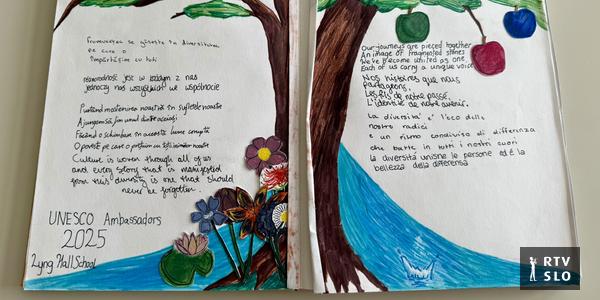 Frumusețea se găsește în diversitatea
pe care o
împărtășim cu toții
różnorodność jest w każdym z nas
jednoczy nas wszystkich we wspólnocie
Purtăm moștenirea noastră în sufletele noastre
Ajungem să fim unul dintre aceiași
Făcând o schimbare în această lume coruptă
O poveste pe care o prețuim cu toții inimilor noastre
Culture is woven through all of us
and every story that is manifested
from this diversity is one that should
never be forgotten.
UNESCO Ambassadors
2025
Lyng Hall School
Our journeys are pieced together
An image of fragmented stones
We've become united as one,
Each of us carry a unique voice
Nos histoires que nous
partageons,
Les fils de notre passé,
L'identité de notre avenir.
La diversità é l'eco delle
nostre radici
e un ritmo condiviso di differenza
che batte in tutti i nostri cuori
la diversità unisne le persone ed é la
bellezza della differensa
RTV
SLO